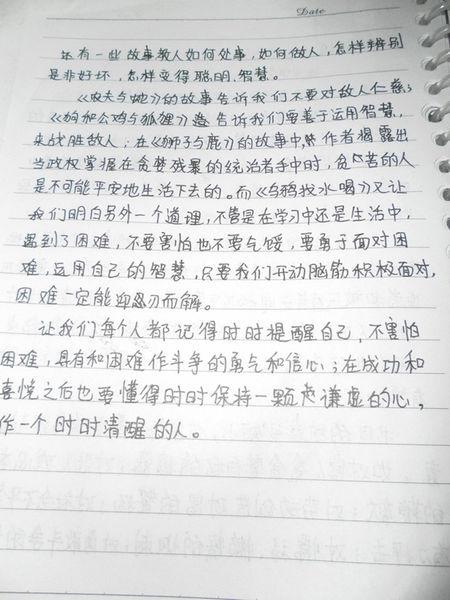 Date
还有一些故事教人如何处事，如何做人，怎样辨别
是非好坏，怎样变得聪明、智慧。
《农夫与蛇》的故事告诉我们不要对敌人仁慈；
《狗和公鸡与狐狸》告诉我们要善于运用智慧，
来战胜敌人；在《狮子与鹿》的故事中，作者揭露出
当政权掌握在贪婪残暴的统治者手中时，贫苦的人
是不可能平安地生活下去的。而《乌鸦找水喝》又让
我们明白另外一个道理，不管是在学习中还是生活中，
遇到了困难，不要害怕也不要气馁，要勇于面对困
难，运用自己的智慧，只要我们开动脑筋积极面对，
困难一定能迎刃而解。
让我们每个人都记得时时提醒自己，不害怕
困难，具有和困难作斗争的勇气和信心；在成功和
喜悦之后也要懂得时时保持一颗谦虚的心，
作一个时时清醒的人。